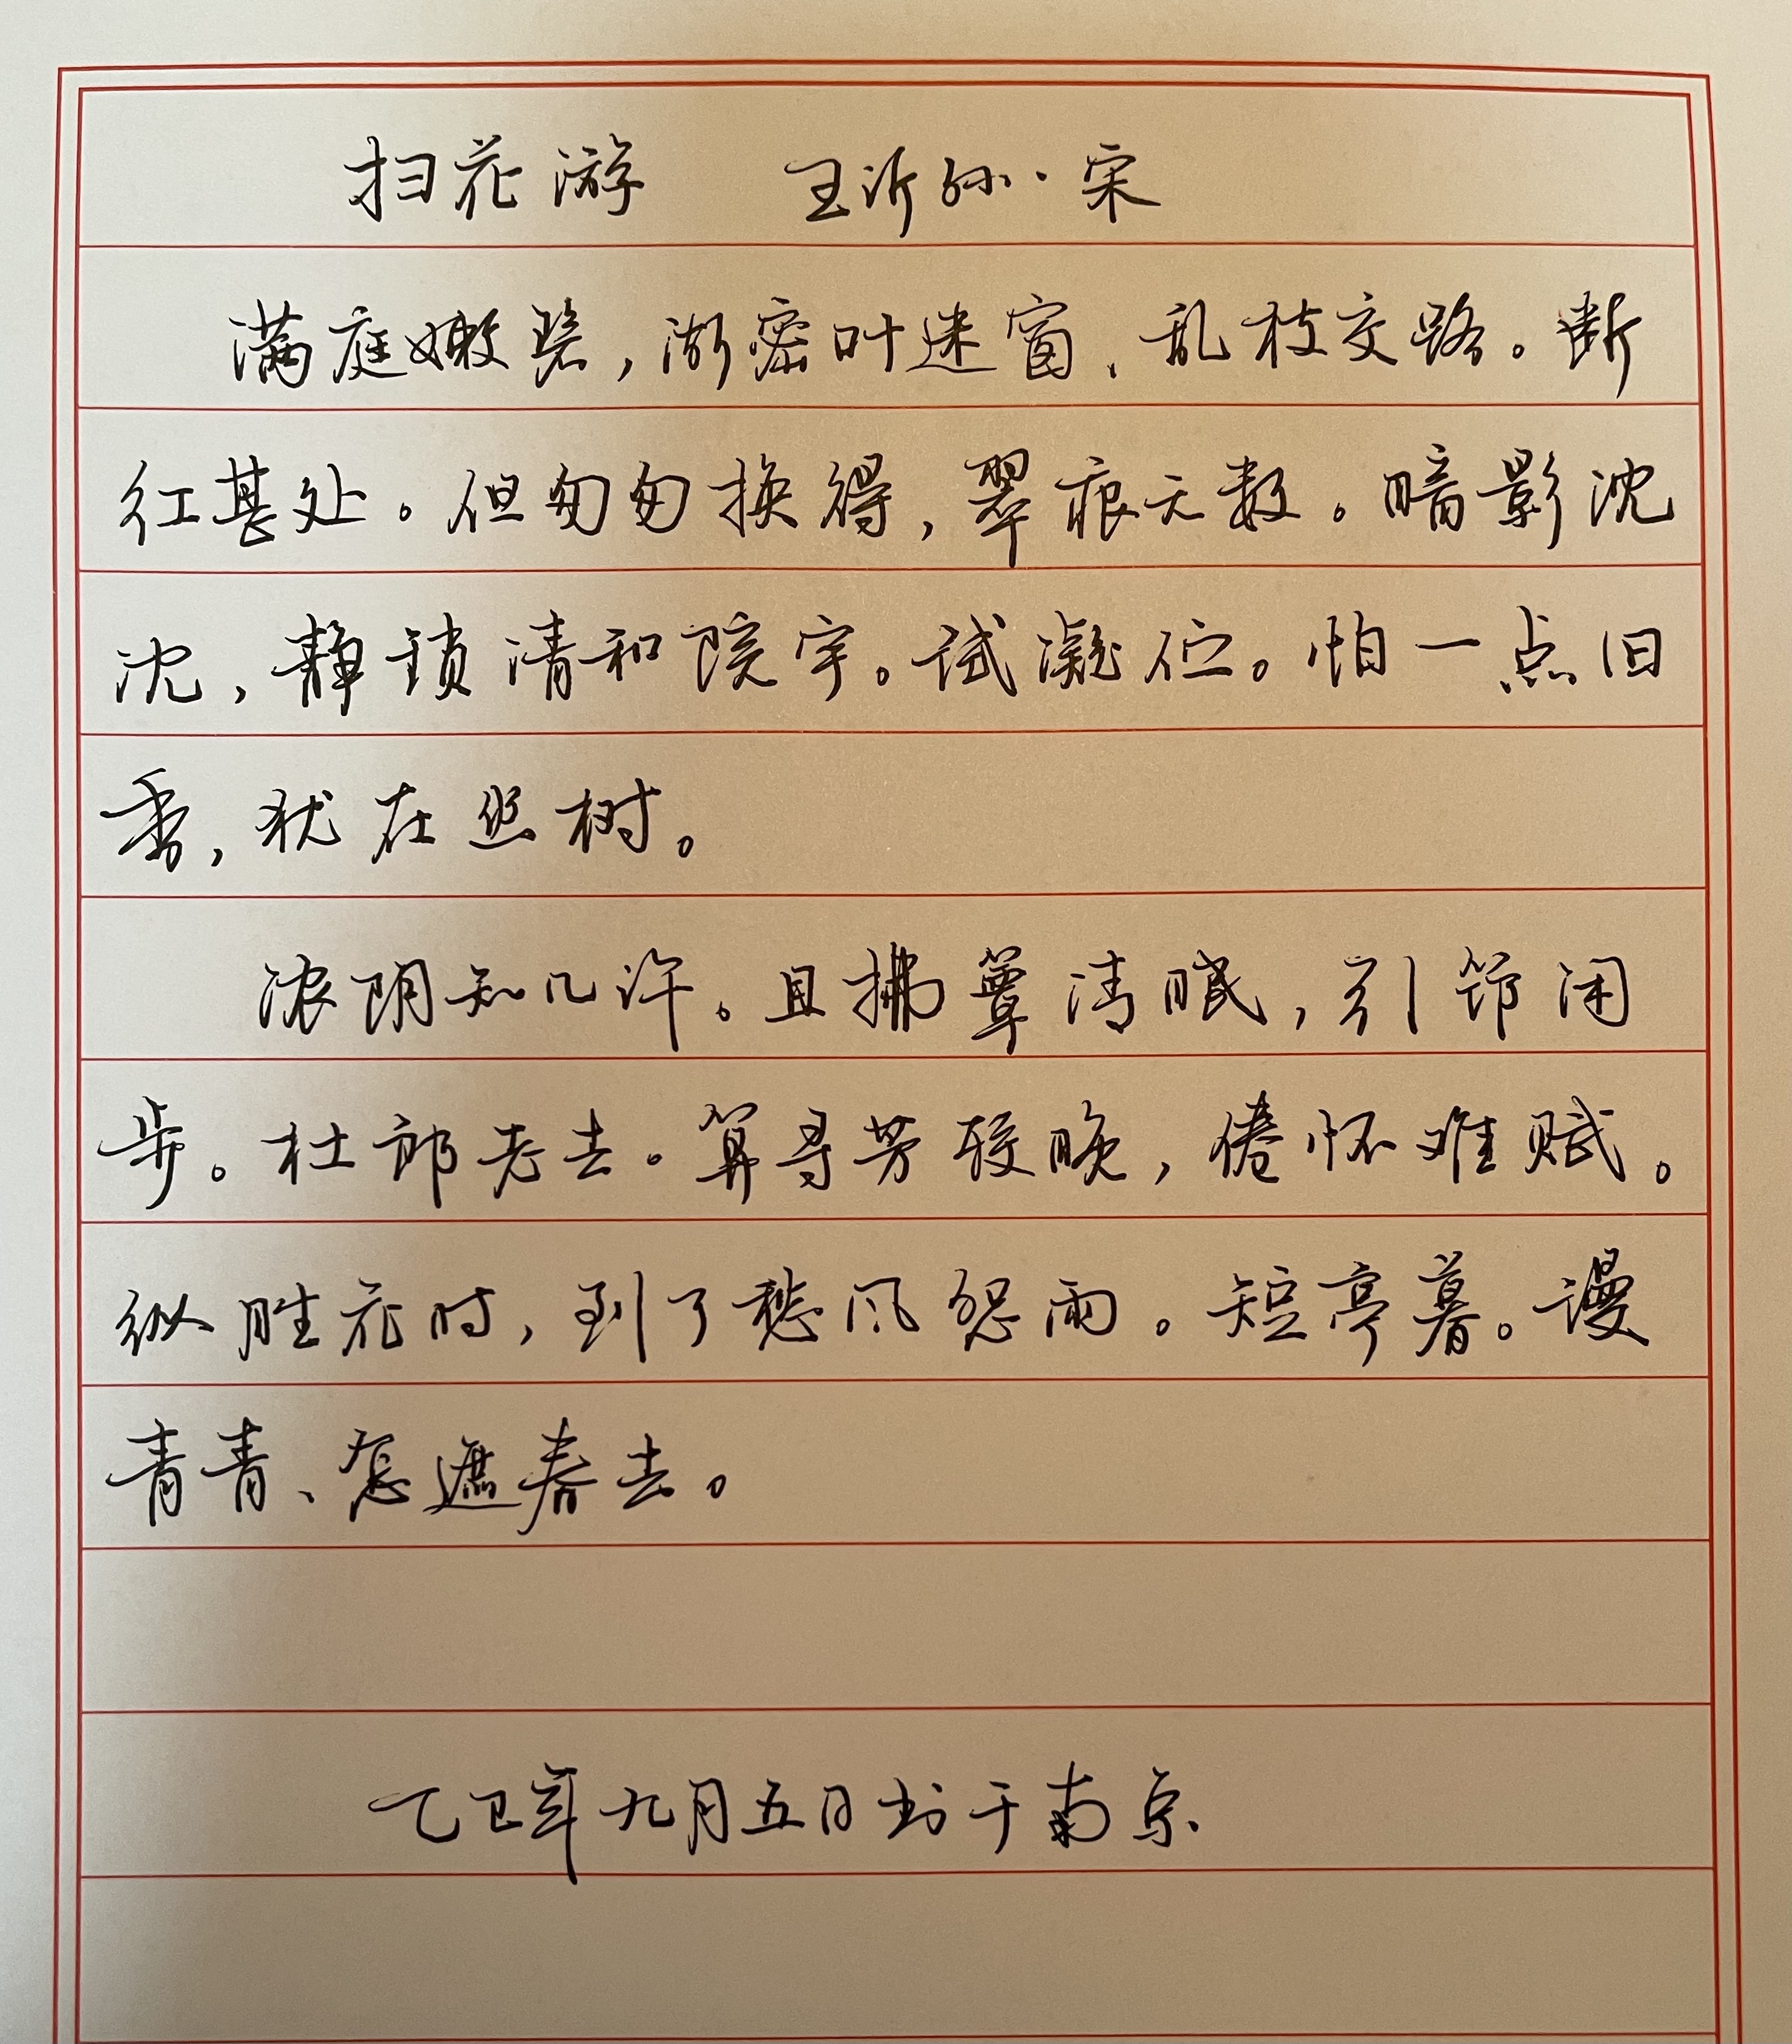 扫花游 王沂孙·宋
满庭嫩碧，渐密叶迷窗、乱枝交路。断
红甚处。但匆匆换得，翠痕无数。暗影沈
沈，静锁清和院宇。试凝伫。怕一点旧
香，犹在幽树。
浓阴知几许。且拂簟清眠，引筇闲
步。杜郎老去。算寻芳较晚，倦怀难赋。
纵胜花时，到了愁风怨雨。短亭暮。谩
青青、怎遮春去。
乙巳年九月五日书于南京